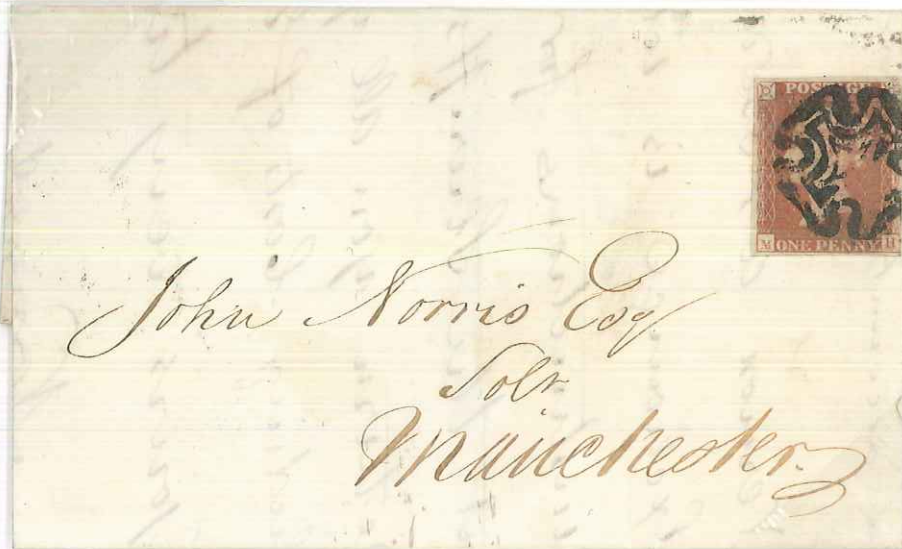 POSTAGE
M ONE PENNY H
John Norris Esq
Solr
Manchester